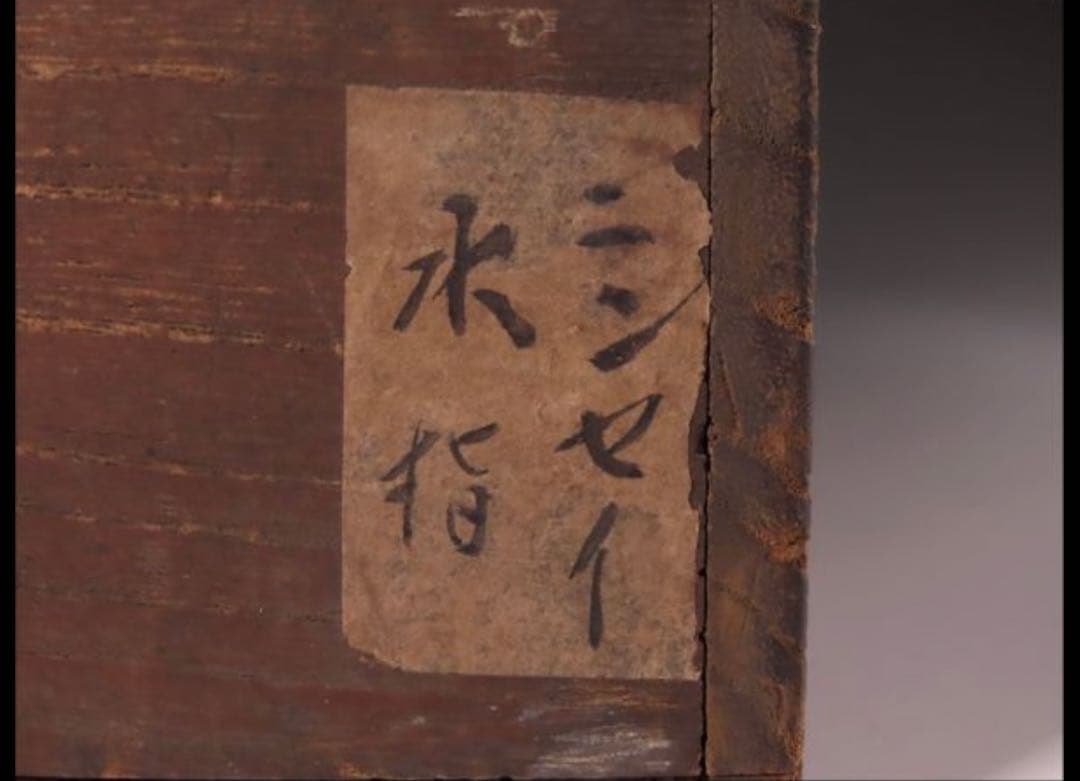 ニンセイ
水指